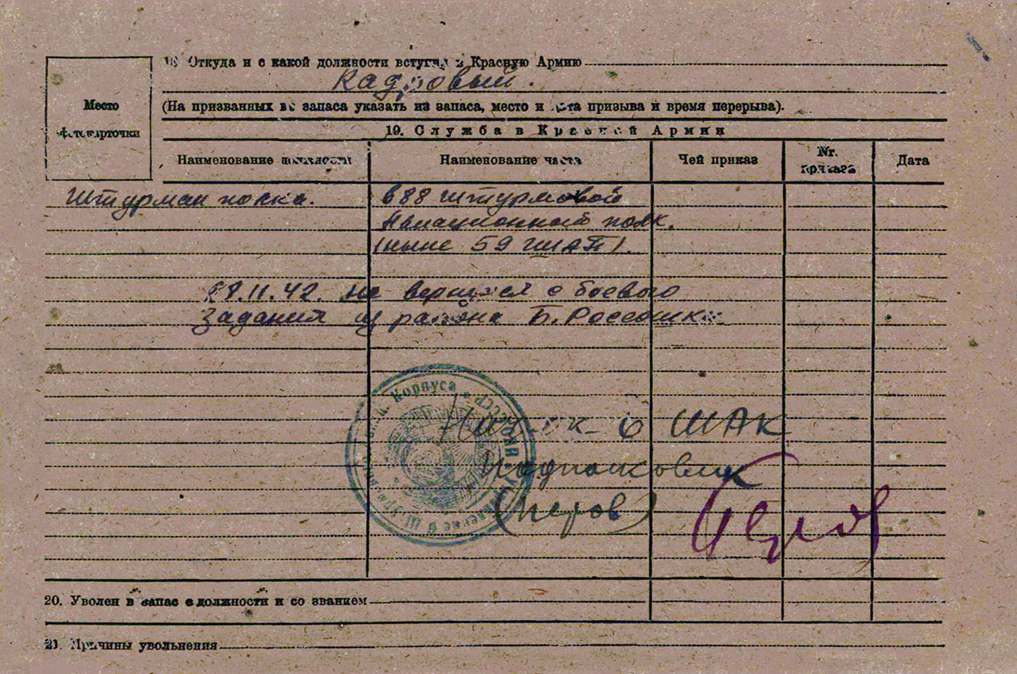 18. Откуда и с какой должности вступил в Красную Армию
Кадровый.
(На призванных из запаса указать из запаса, место и дата призыва и время перерыва).
Место
фотокарточки
19. Служба в Красной Армии
Наименование должности
Наименование части
Чей приказ
Nr. приказа
Дата
Штурман полка.
688 штурмовой
Авиационный полк.
(ныне 59 ГШАП).
не вернулся с боевого
задания из района Б. Россошка.
Корпуса
6 ШАК
Подполковник
20. Уволен в запас с должности и со званием
21. Причины увольнения